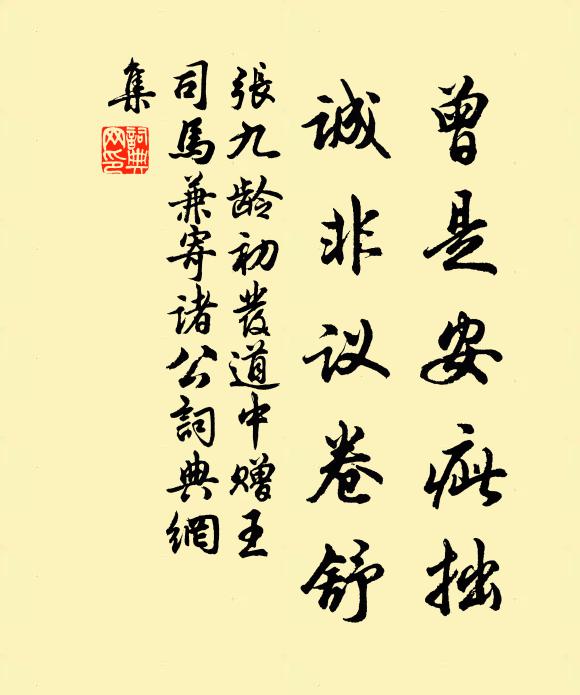 曾是安疵拙
诚非议卷舒
張九龄初發道中赠王
司馬兼寄诸公詞典網
集
詞典网印